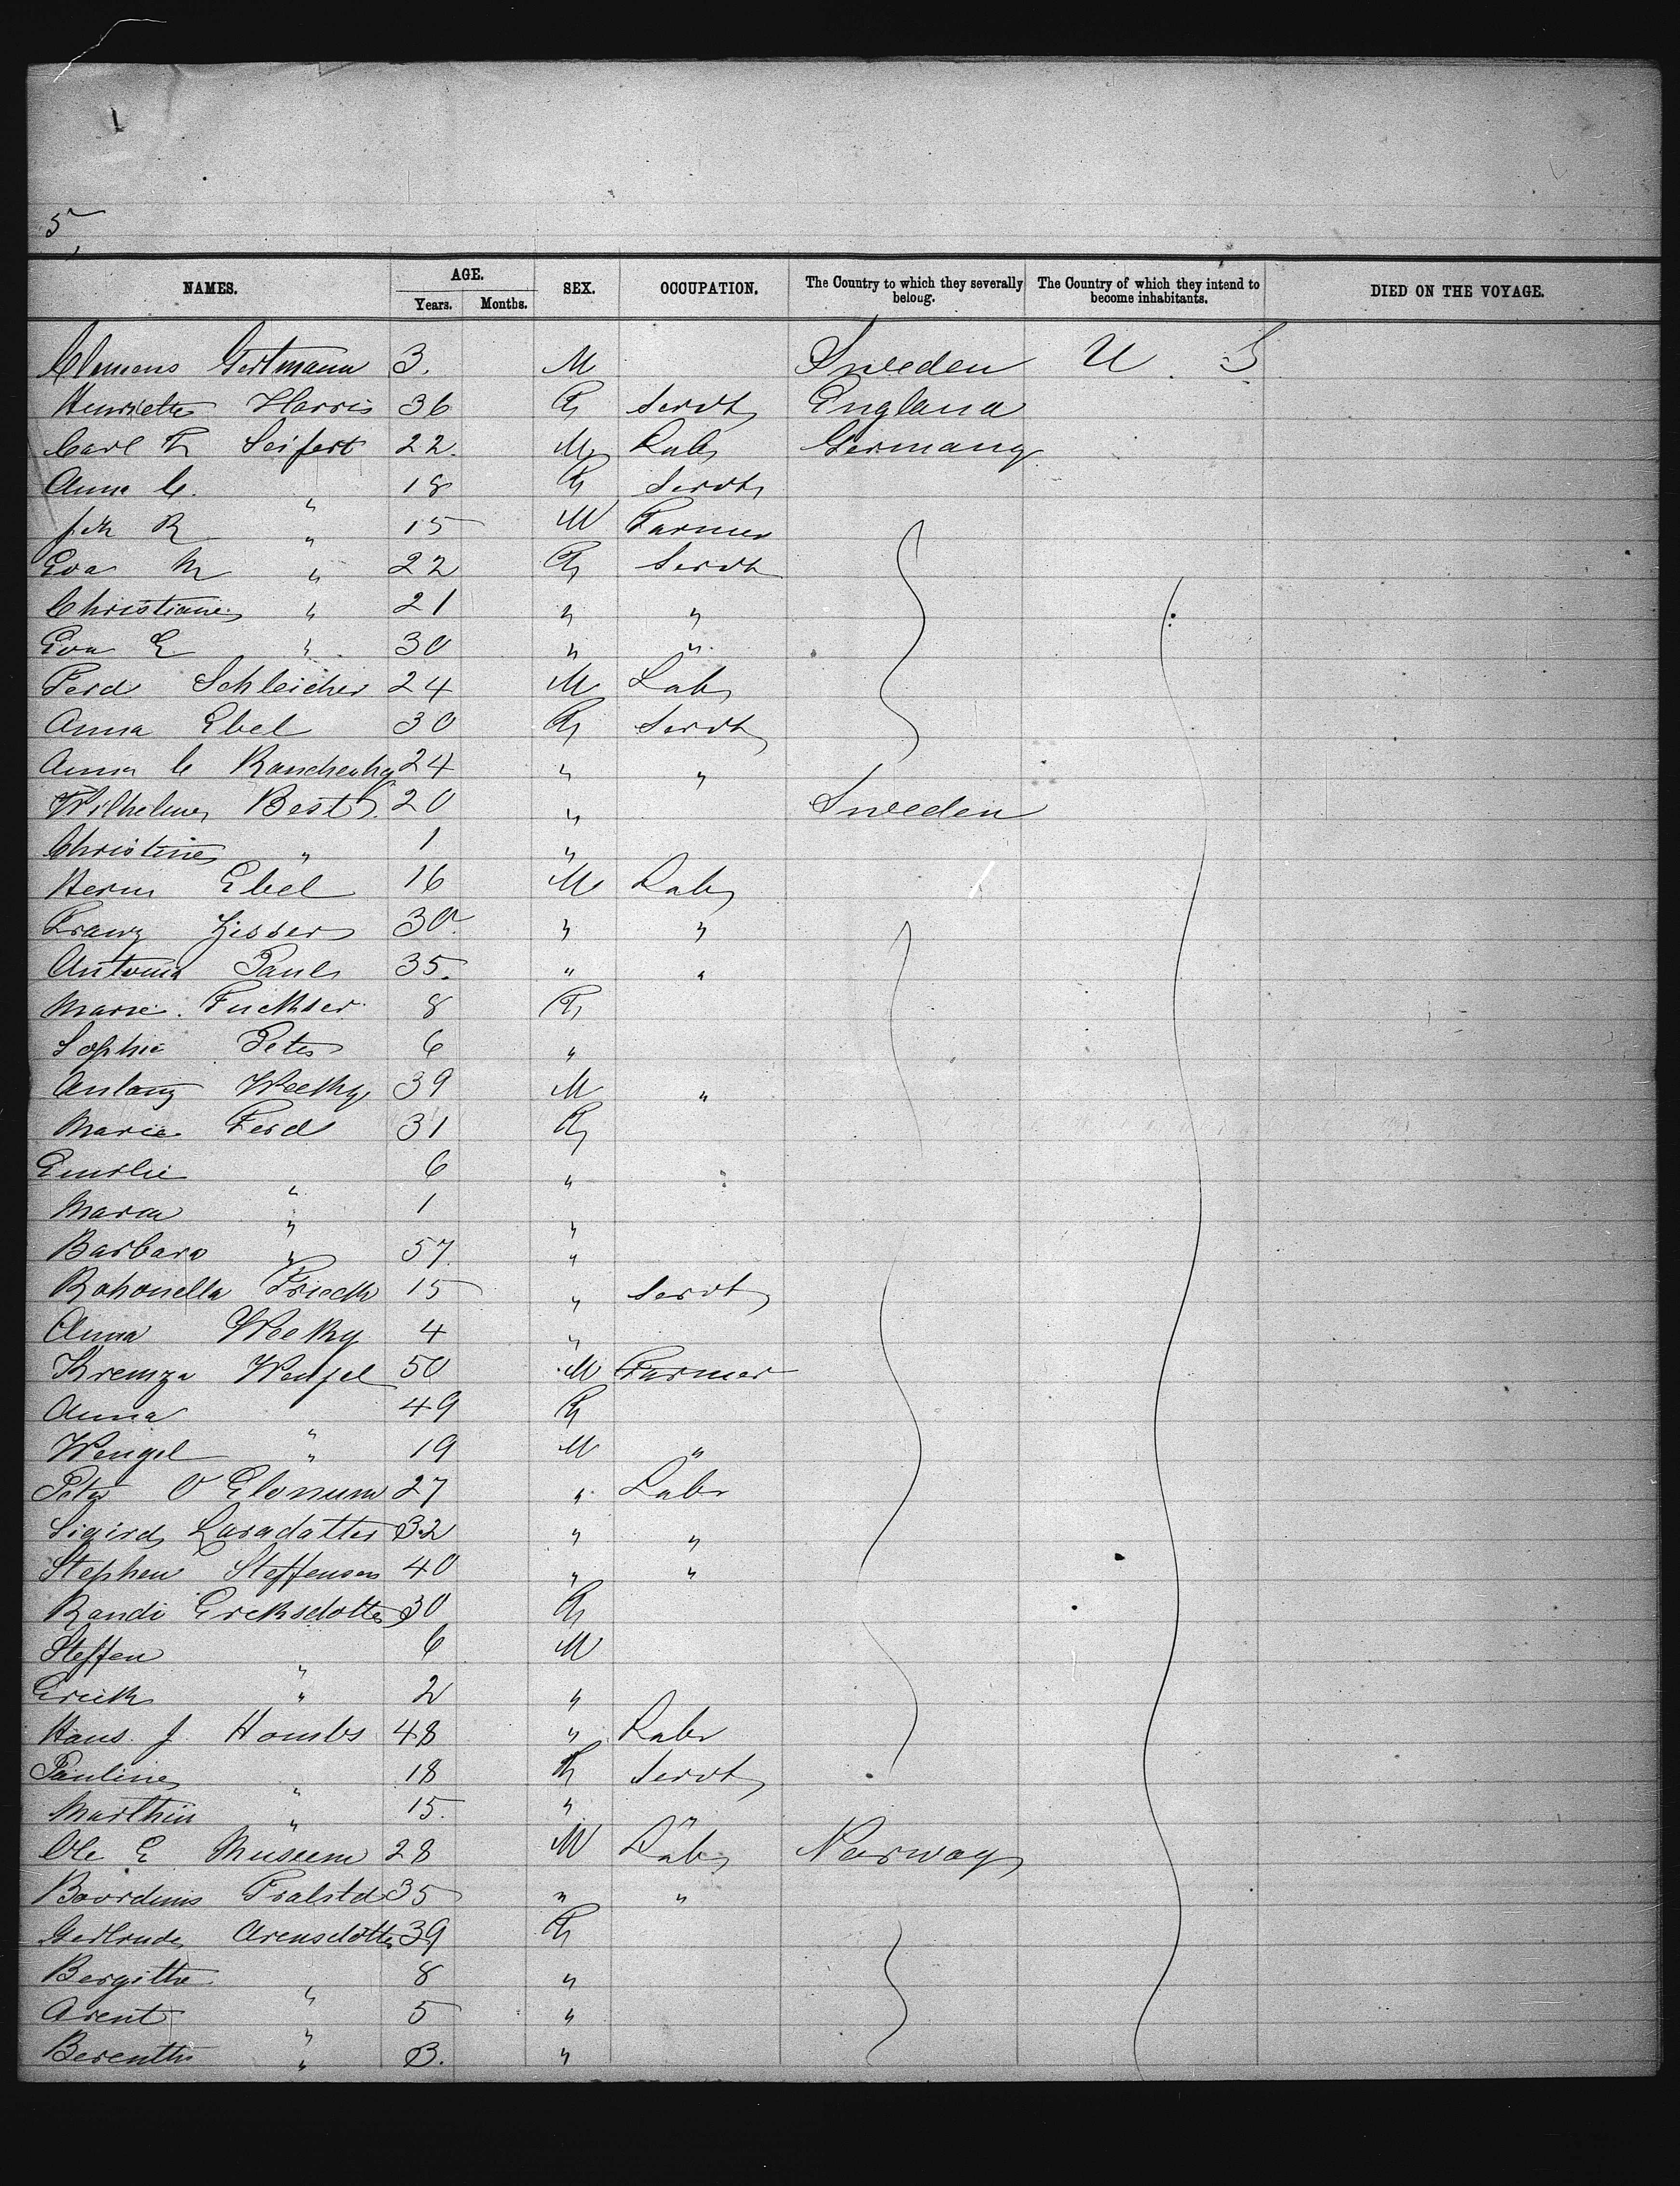 5,
NAMES. AGE. SEX. OCCUPATION. The Country to which they severally belong. The Country of which they intend to become inhabitants. DIED ON THE VOYAGE.
Years. Months.
Clemens Gertmann 3. M Sweden U. S
Henriette Harris 36 F Servt England
Carl F Seifert 22. M Lab Germany
Anna C. " 18 F Servt
Joh R " 15 M Farmer
Eva M " 22 F Servt
Christiane " 21 " "
Eva E " 30 " "
Ferd Schleicher 24 M Lab
Anna Ebel 30 F Servt
Anna C 24 " "
Wilhelm Best 20 " Sweden
Christine " 1 "
Herm Ebel 16 M Lab
Franz Zisser 30. " "
Antonia Paul 35. " "
Marie Fuchser 8 F
Sophie Peter 6 "
Weeky 39 M "
Marie Ferd 31 F
Emilie " 6 "
Maria " 1 "
Barbara " 57. "
Friedk 15 " Servt
Anna Weeky 4 "
Kremza Wenzel 50 M Farmer
Anna " 49 F
Wenzel " 19 M "
Peter O 27 " Labr
Sigird Larsdatter 32 " "
Stephen Steffensen 40 " "
Randi Ericksdotter 30 F
Steffen " 6 M
Erick " 2 "
Hans J Hombs 48 " Labr
Pauline " 18 F Servt
Marthin " 15. " "
Ole E Museum 28 M Lab Norway
35 " "
Gertrude Arensdotter 39 F
Bergitte " 8 "
Arent " 5 "
Berenthe " 3. "